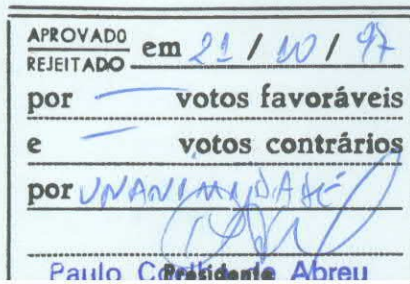 APROVADO
REJEITADO em 21 / 10 / 97
por — votos favoráveis
e — votos contrários
por UNANIMIDADE
Presidente
Paulo Abreu